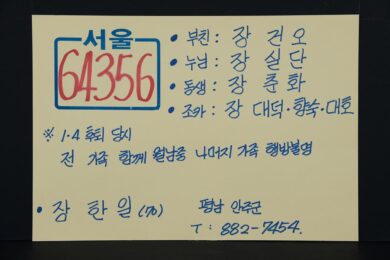 서울
64356
• 부친 : 장 건 오
• 누님 : 장 실 단
• 동생 : 장 춘 화
• 조카 : 장 대덕·항숙·대호
※ 1·4 후퇴 당시
전 가족 함께 월남중 나머지 가족 행방불명
• 장 한 일 (70) 평남 안주군
T : 882-7454.